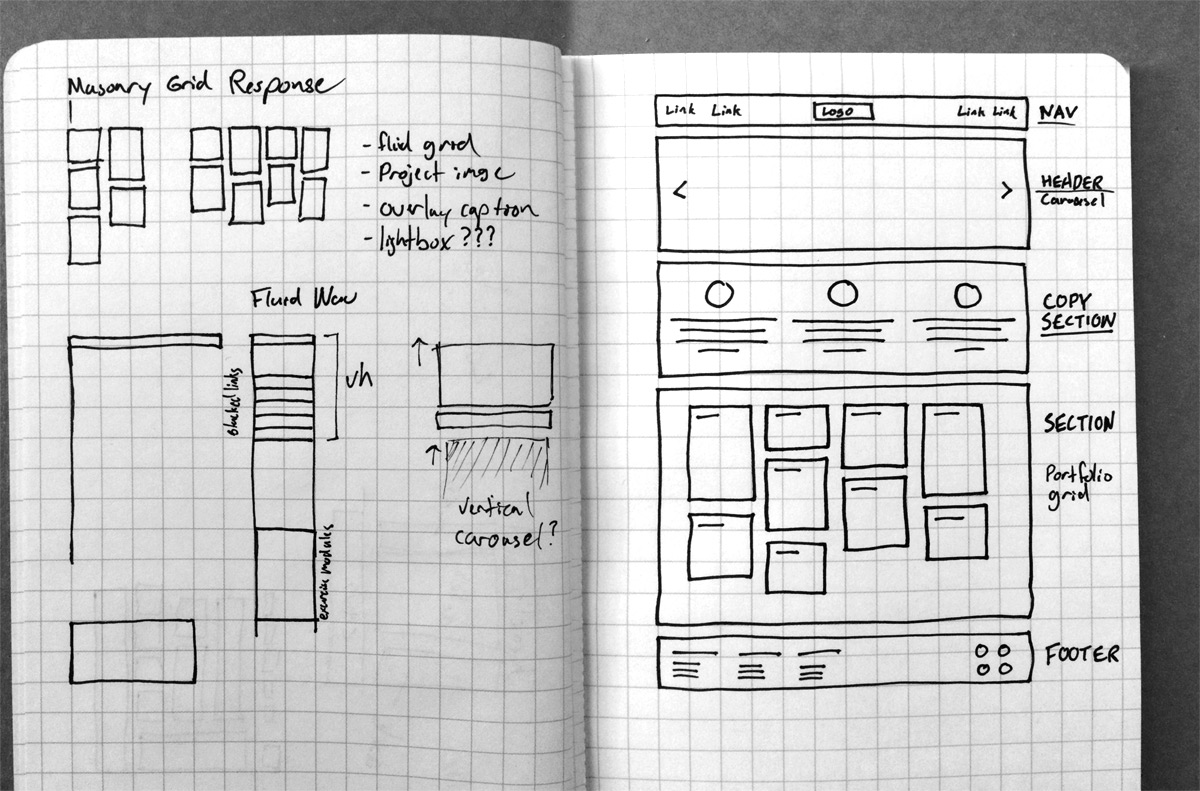 Masonry Grid Response
- fluid grid
- Project image
- overlay caption
- lightbox ???
Fluid
stacked links
vh
exercise modules
vertical
carousel?
Link Link
Logo
Link Link
NAV
HEADER
Carousel
COPY
SECTION
SECTION
Portfolio
grid
FOOTER